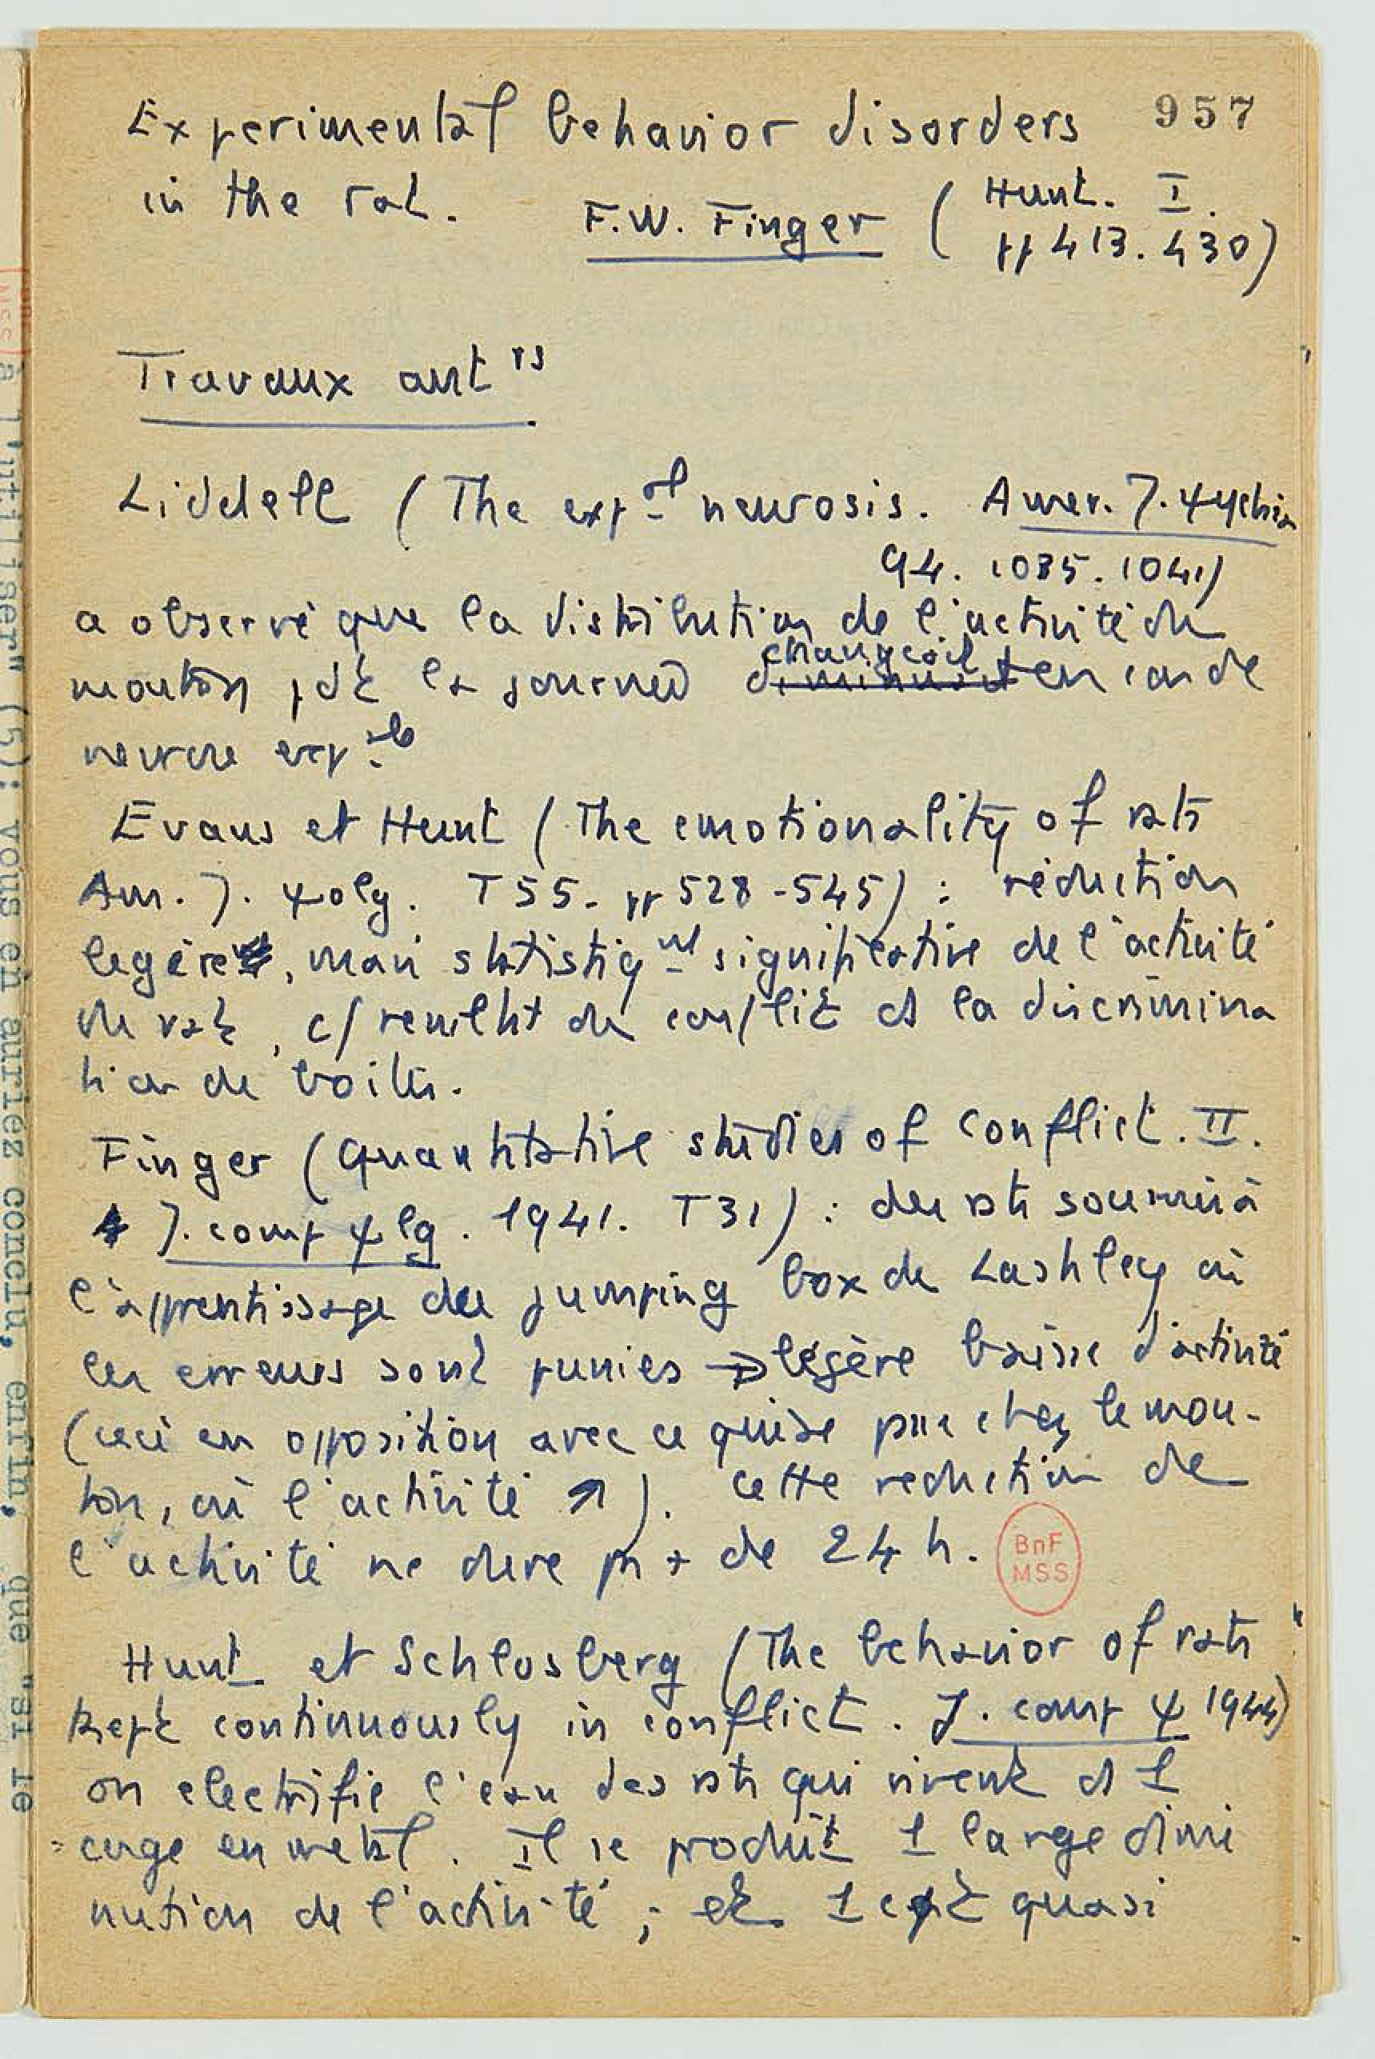 957
Experimental behavior disorders
in the rat. F.W. Finger ( Hunt. I.
pp 413. 430)
Travaux ant rs
Liddell ( The exp al neurosis. Amer. J. ψychia
94. 1035. 1041)
a observé que la distribution de l'activité du
changeait
mouton pdt la journée diminuait en cas de
nevrose exp le
Evans et Hunt ( The emotionality of rats
Am. J. ψolg. T 55. pp 528-545) : réduction
legère, mais statistiq nt significative de l'activité
du rat, c/ resultat du conflit ds la discrimina
tion de boites.
Finger ( Quantitative studies of conflict. II.
J. comp ψlg. 1941. T31) : des rats soumis à
l'apprentissage du jumping box de Lashley où
les erreurs sont punies → légère baisse d'activité
(ceci en opposition avec ce qui se passe chez le mou-
ton, où l'activité ↗ ). Cette reduction de
l'activité ne dure pas + de 24 h.
BnF
MSS
Hunt et Schlosberg ( The behavior of rats
kept continuously in conflict. J. comp ψ 1944)
on electrifie l'eau des rats qui vivent ds 1
cage en metal. Il se produit 1 large dimi
nution de l'activité ; et 1 cpt quasi
à l'utiliser" (5): vous en auriez conclu, enfin, que "si le